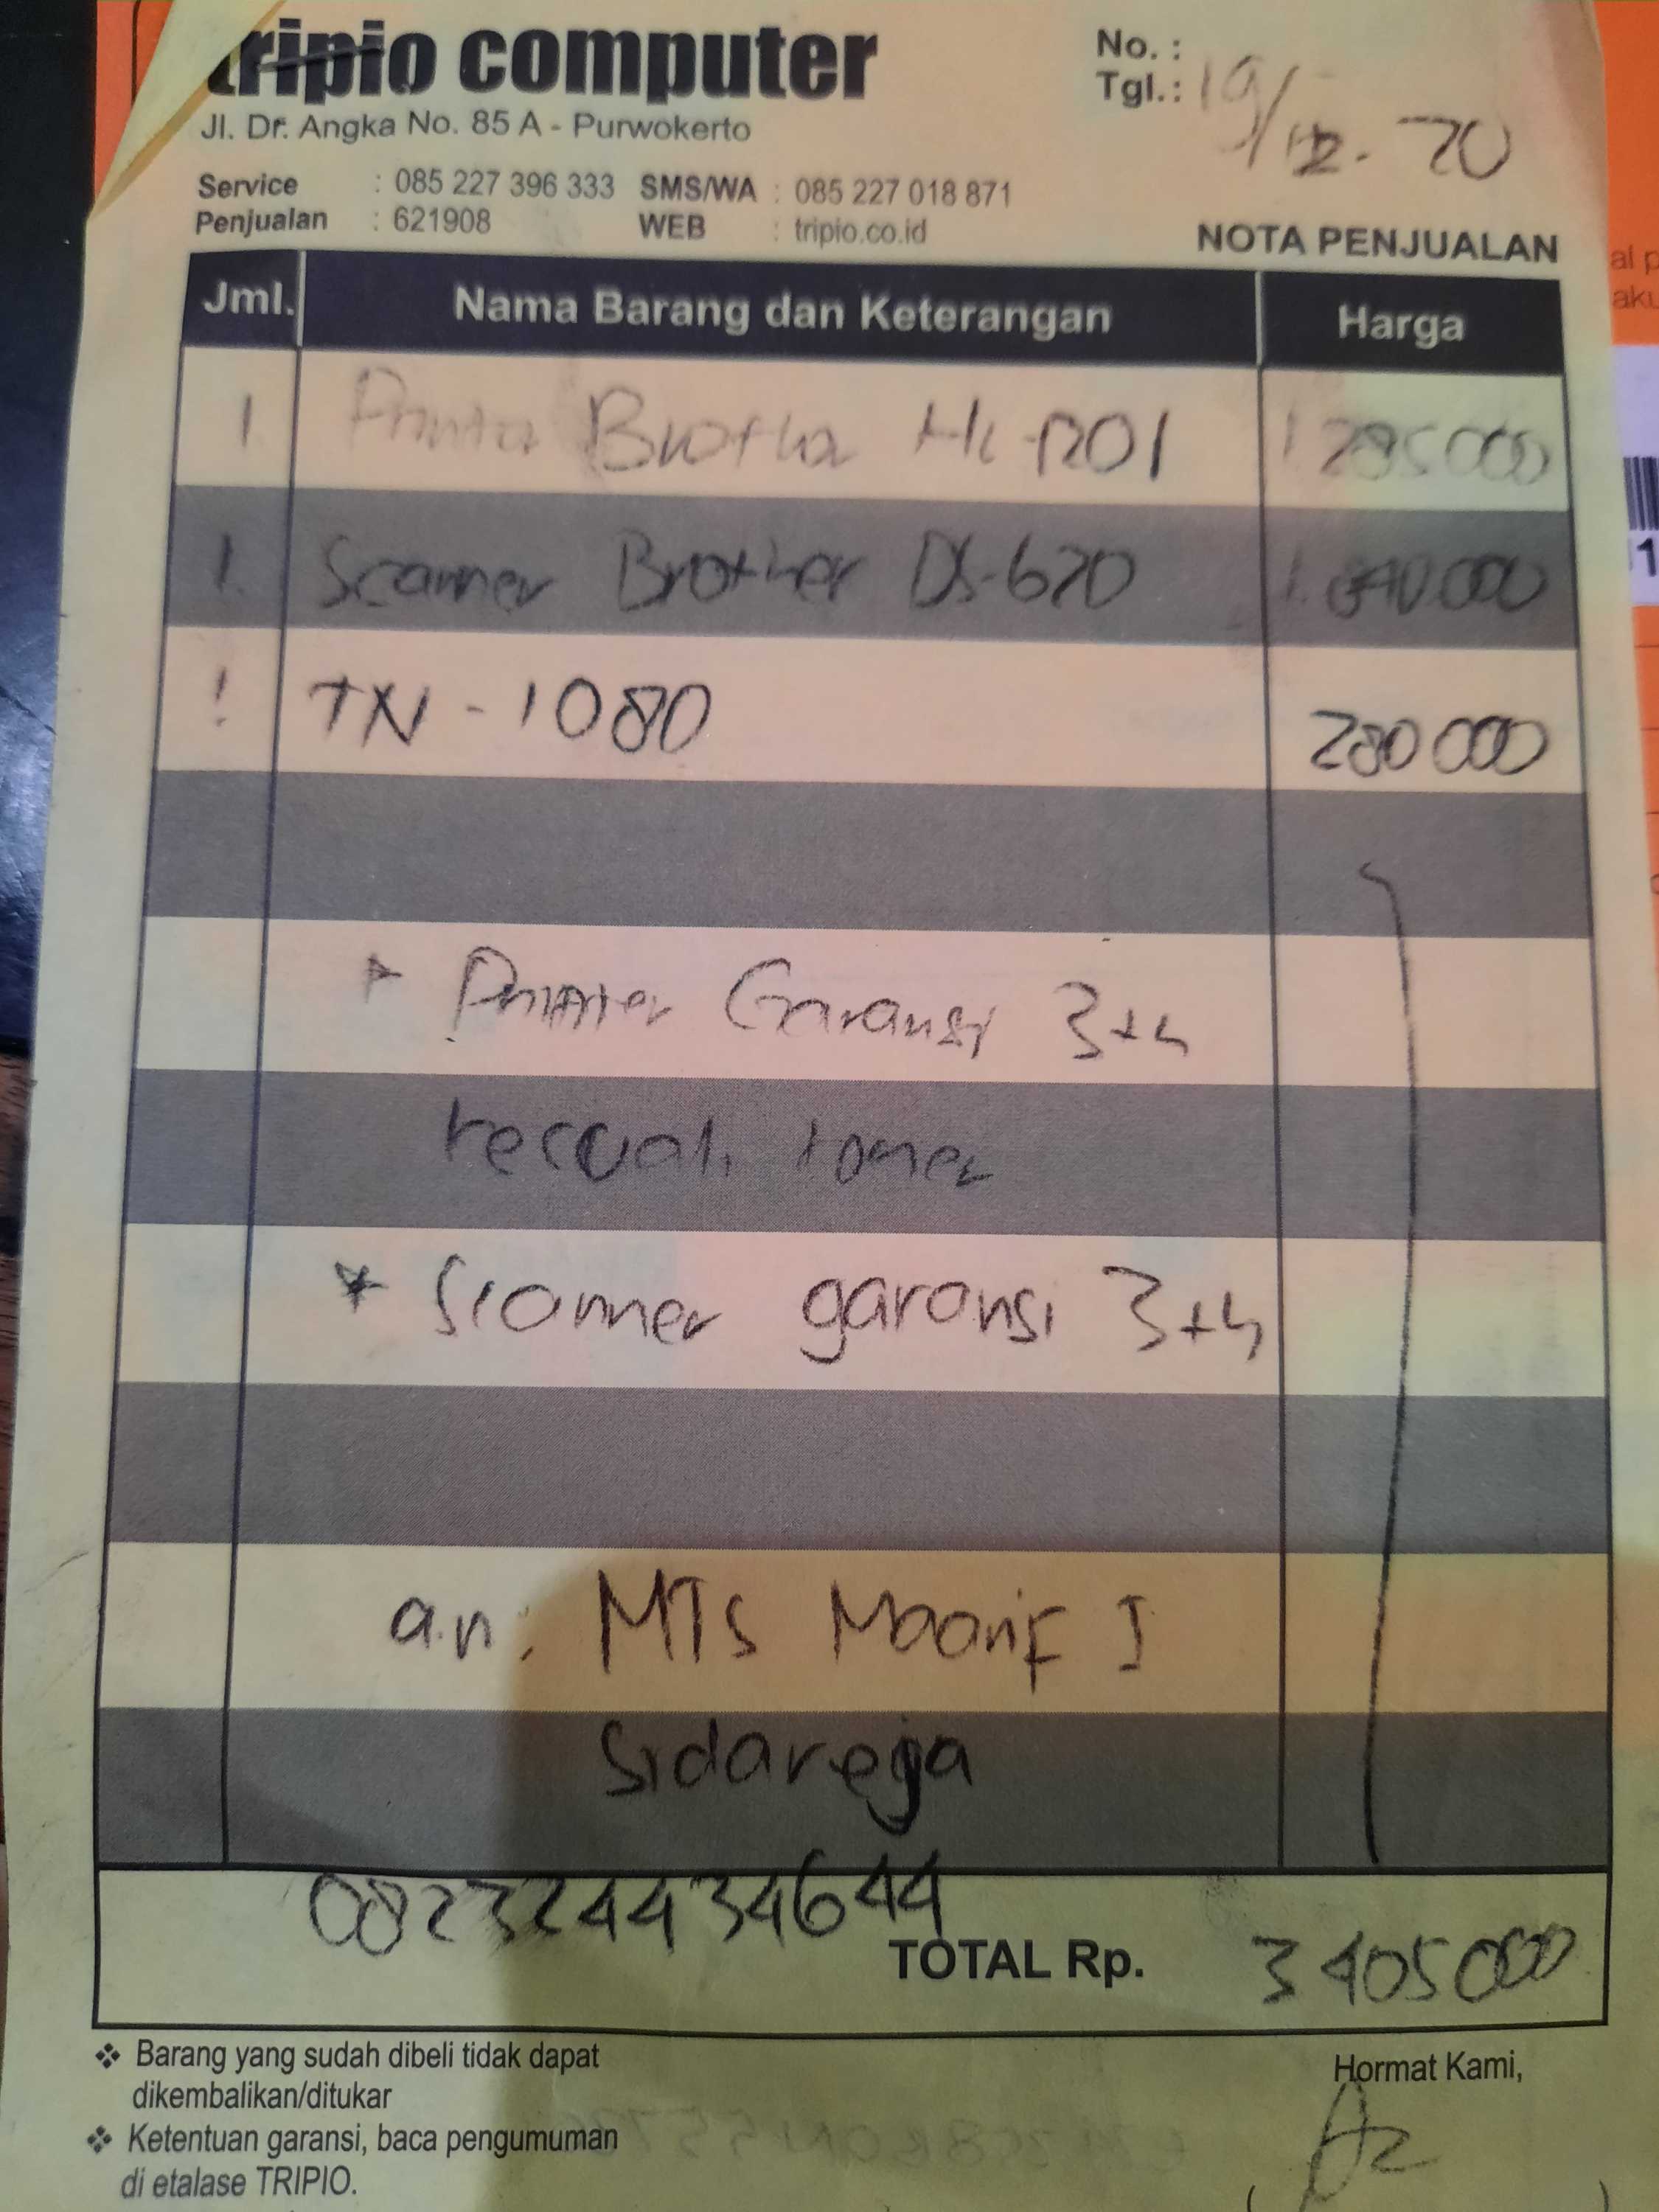 tripio computer
Jl. Dr. Angka No. 85 A - Purwokerto
No. :
Tgl.: 19/12-20
Service : 085 227 396 333 SMS/WA : 085 227 018 871
Penjualan : 621908 WEB : tripio.co.id
NOTA PENJUALAN
Jml. Nama Barang dan Keterangan Harga
1 Printer Brother HL-1201 1285000
1. Scanner Brother DS-620 1.840.000
1 TN-1080 280000
* Printer Garansi 3th
kecuali toner
* Scanner garansi 3th
a.n: MTs Maarif I
Sidareja
082324434644
TOTAL Rp. 3405000
❖ Barang yang sudah dibeli tidak dapat
dikembalikan/ditukar
❖ Ketentuan garansi, baca pengumuman
di etalase TRIPIO.
Hormat Kami,